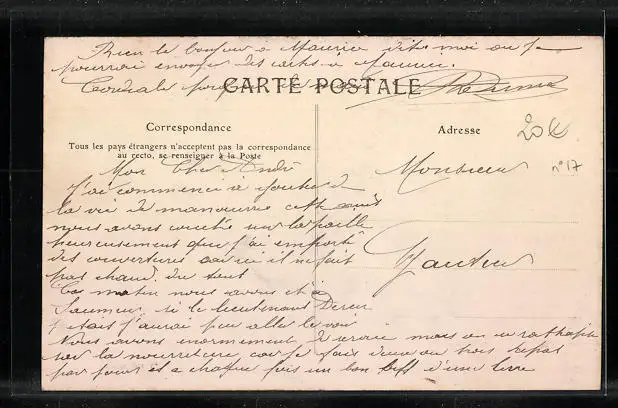 Bien le bonjour à Maurice dites moi ou je
pourrai envoyer des cartes à Maurice.
Cordiale
CARTE POSTALE
Correspondance
Adresse
Tous les pays étrangers n'acceptent pas la correspondance
au recto, se renseigner à la Poste
20€
n°17
Mon Cher André
J'ai commencé à gouter de
la vie de manœuvre cette nuit
nous avons couché sur la paille
heureusement que j'ai emporté
des couvertures car ici il ne fait
pas chaud du tout
Ce matin nous avons été à
Saumur si le lieutenant
y était j'aurai pu aller le voir
Nous avons énormement de mais on se rathape
sur la nourriture car je fais deux ou trois repas
par jour et a chaque fois un bon beff d'une livre
Monsieur